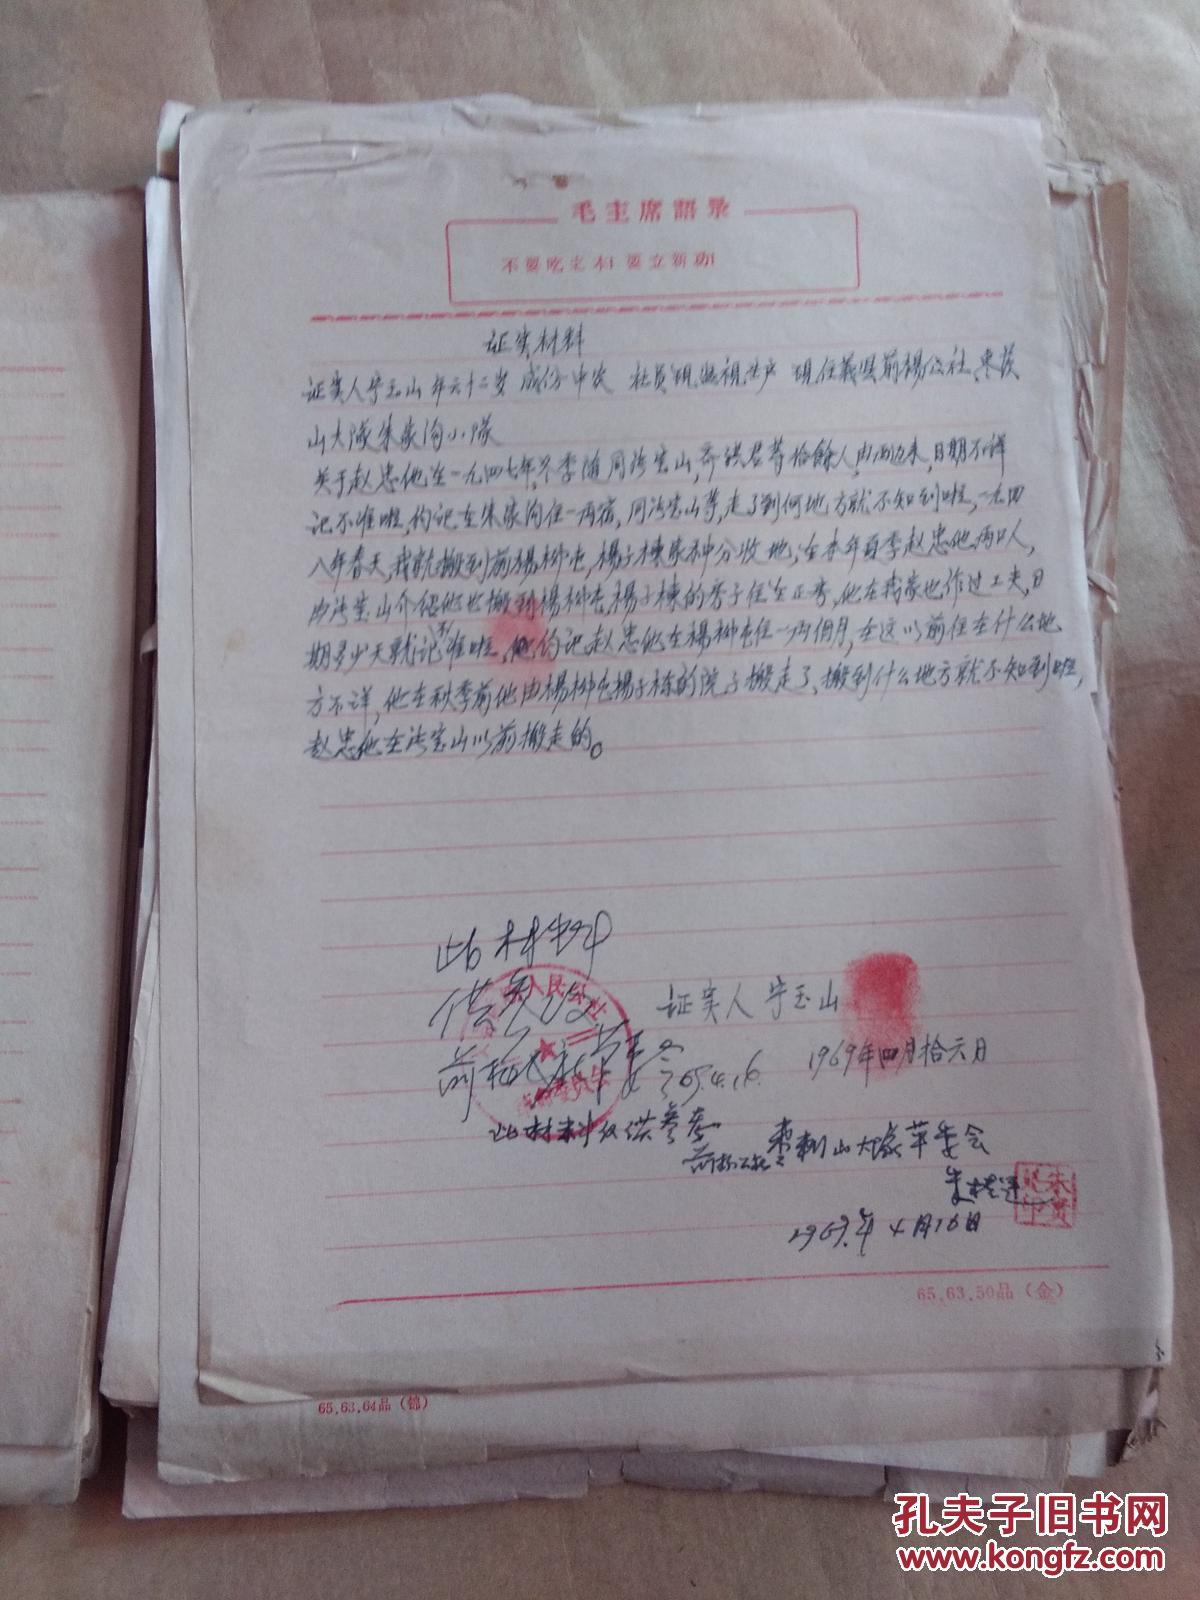 毛主席語录
不要吃老本 要立新功
证实材料
证实人宁玉山 年六十二岁 成份中农 社员 现 社 现住義县前楊公社、枣茨
山大隊朱家沟小隊
关于赵忠他在一九四七年冬季随同洪宝山,齐 君等拾餘人,由西边来,日期不祥
记不准啦,约记在朱家沟住一两宿,同洪宝山等,走了到何地方就不知到啦,一九四
八年春天,我就搬到前楊柳屯,楊子棟家种分收地,在本年夏季赵忠他两口人,
由洪宝山介绍他也搬到楊柳屯楊子棟的房子住 正房,他在我家也作过工夫,日
期多少天就记不准啦,他约记赵忠他在楊柳屯住一两個月,在这以前住在什么地
方不详,他在秋季前他由楊柳屯楊子栋的院子搬走了,搬到什么地方就不知到啦,
赵忠他在洪宝山以前搬走的。
此材料
供参攷
人民公社
委员会
69.4.16.
证实人 宁玉山
1969年四月拾六日
此材料仅供参考
枣刺山大隊革委会
朱
1969.年4月16日
65.63.50品(金)
65.63.64品(锦)
孔夫子旧书网
www.kongfz.com